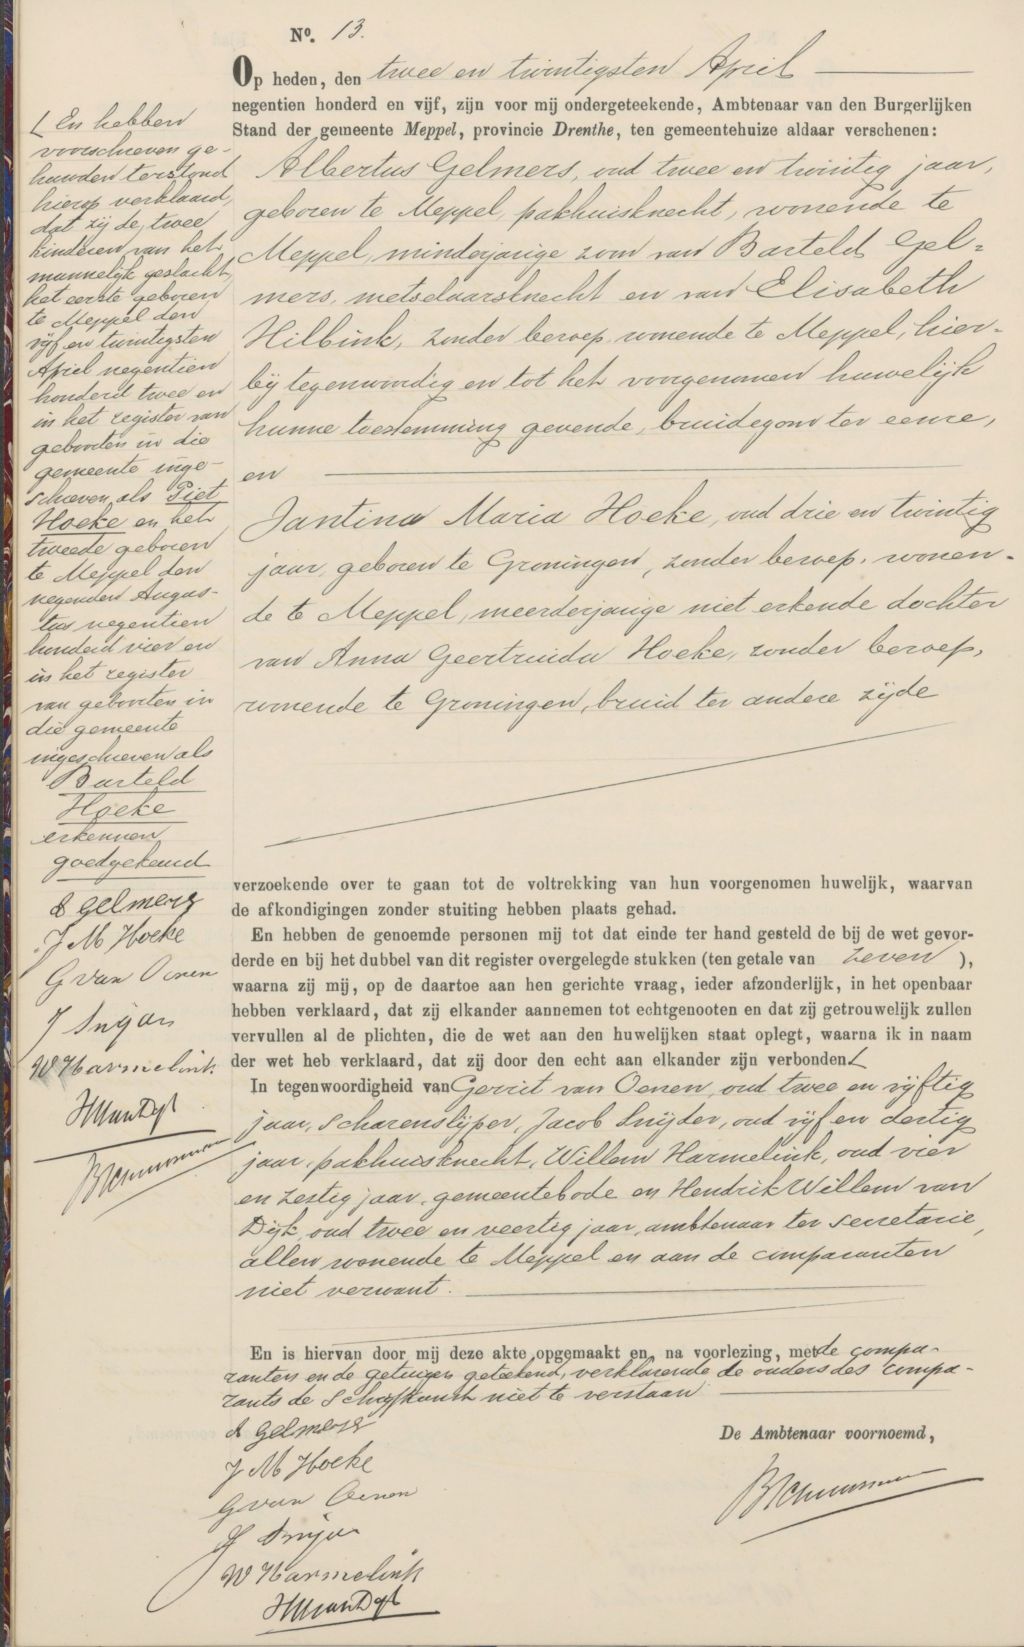 Nº. 13.
Op heden, den twee en twintigsten April
negentien honderd en vijf, zijn voor mij ondergeteekende, Ambtenaar van den Burgerlijken
Stand der gemeente Meppel, provincie Drenthe, ten gemeentehuize aldaar verschenen:
Albertus Gelmers, oud twee en twintig jaar,
geboren te Meppel, pakhuisknecht, wonende te
Meppel, minderjarige zoon van Barteld Gel=
mers, metselaarsknecht en van Elisabeth
Hilbink, zonder beroep, wonende te Meppel, hier-
bij tegenwoordig en tot het voorgenomen huwelijk
hunne toestemming gevende, bruidegom ter eenre,
en
Jantina Maria Hoeke, oud drie en twintig
jaar, geboren te Groningen, zonder beroep, wonen-
de te Meppel, meerderjarige niet erkende dochter
van Anna Geertruida Hoeke, zonder beroep,
wonende te Groningen, bruid ter andere zijde
verzoekende over te gaan tot de voltrekking van hun voorgenomen huwelijk, waarvan
de afkondigingen zonder stuiting hebben plaats gehad.
En hebben de genoemde personen mij tot dat einde ter hand gesteld de bij de wet gevor-
derde en bij het dubbel van dit register overgelegde stukken (ten getale van zeven ),
waarna zij mij, op de daartoe aan hen gerichte vraag, ieder afzonderlijk, in het openbaar
hebben verklaard, dat zij elkander aannemen tot echtgenooten en dat zij getrouwelijk zullen
vervullen al de plichten, die de wet aan den huwelijken staat oplegt, waarna ik in naam
der wet heb verklaard, dat zij door den echt aan elkander zijn verbonden.
In tegenwoordigheid van Gerrit van Oenen, oud twee en vijftig
jaar, scharenslijper, Jacob Snijder, oud vijf en dertig
jaar, pakhuisknecht, Willem Harmelink, oud vier
en zestig jaar, gemeentebode en Hendrik Willem van
Dijk, oud twee en veertig jaar, ambtenaar ter secretarie,
allen wonende te Meppel en aan de comparanten
niet verwant.
En is hiervan door mij deze akte opgemaakt en, na voorlezing, met de compa-
ranten en de getuigen geteekend, verklarende de ouders des compa-
rants de schrijfkunst niet te verstaan
A Gelmers
J M Hoeke
G van Oenen
W Harmelink
HW van Dijk
De Ambtenaar voornoemd,
En hebben
voorschreven ge-
huwden terstond
hierop verklaard,
dat zij de twee
kinderen van het
mannelijk geslacht,
het eerste geboren
te Meppel den
vijf en twintigsten
April negentien
honderd twee en
in het register van
geboorten in die
gemeente inge-
schreven als Piet
Hoeke en het
tweede geboren
te Meppel den
negenden Augus-
tus negentien
honderd vier en
in het register
van geboorten in
die gemeente
ingeschreven als
Barteld
Hoeke
erkennen
goedgekeurd
A Gelmers
J M Hoeke
G van Oenen
W Harmelink
HW van Dijk